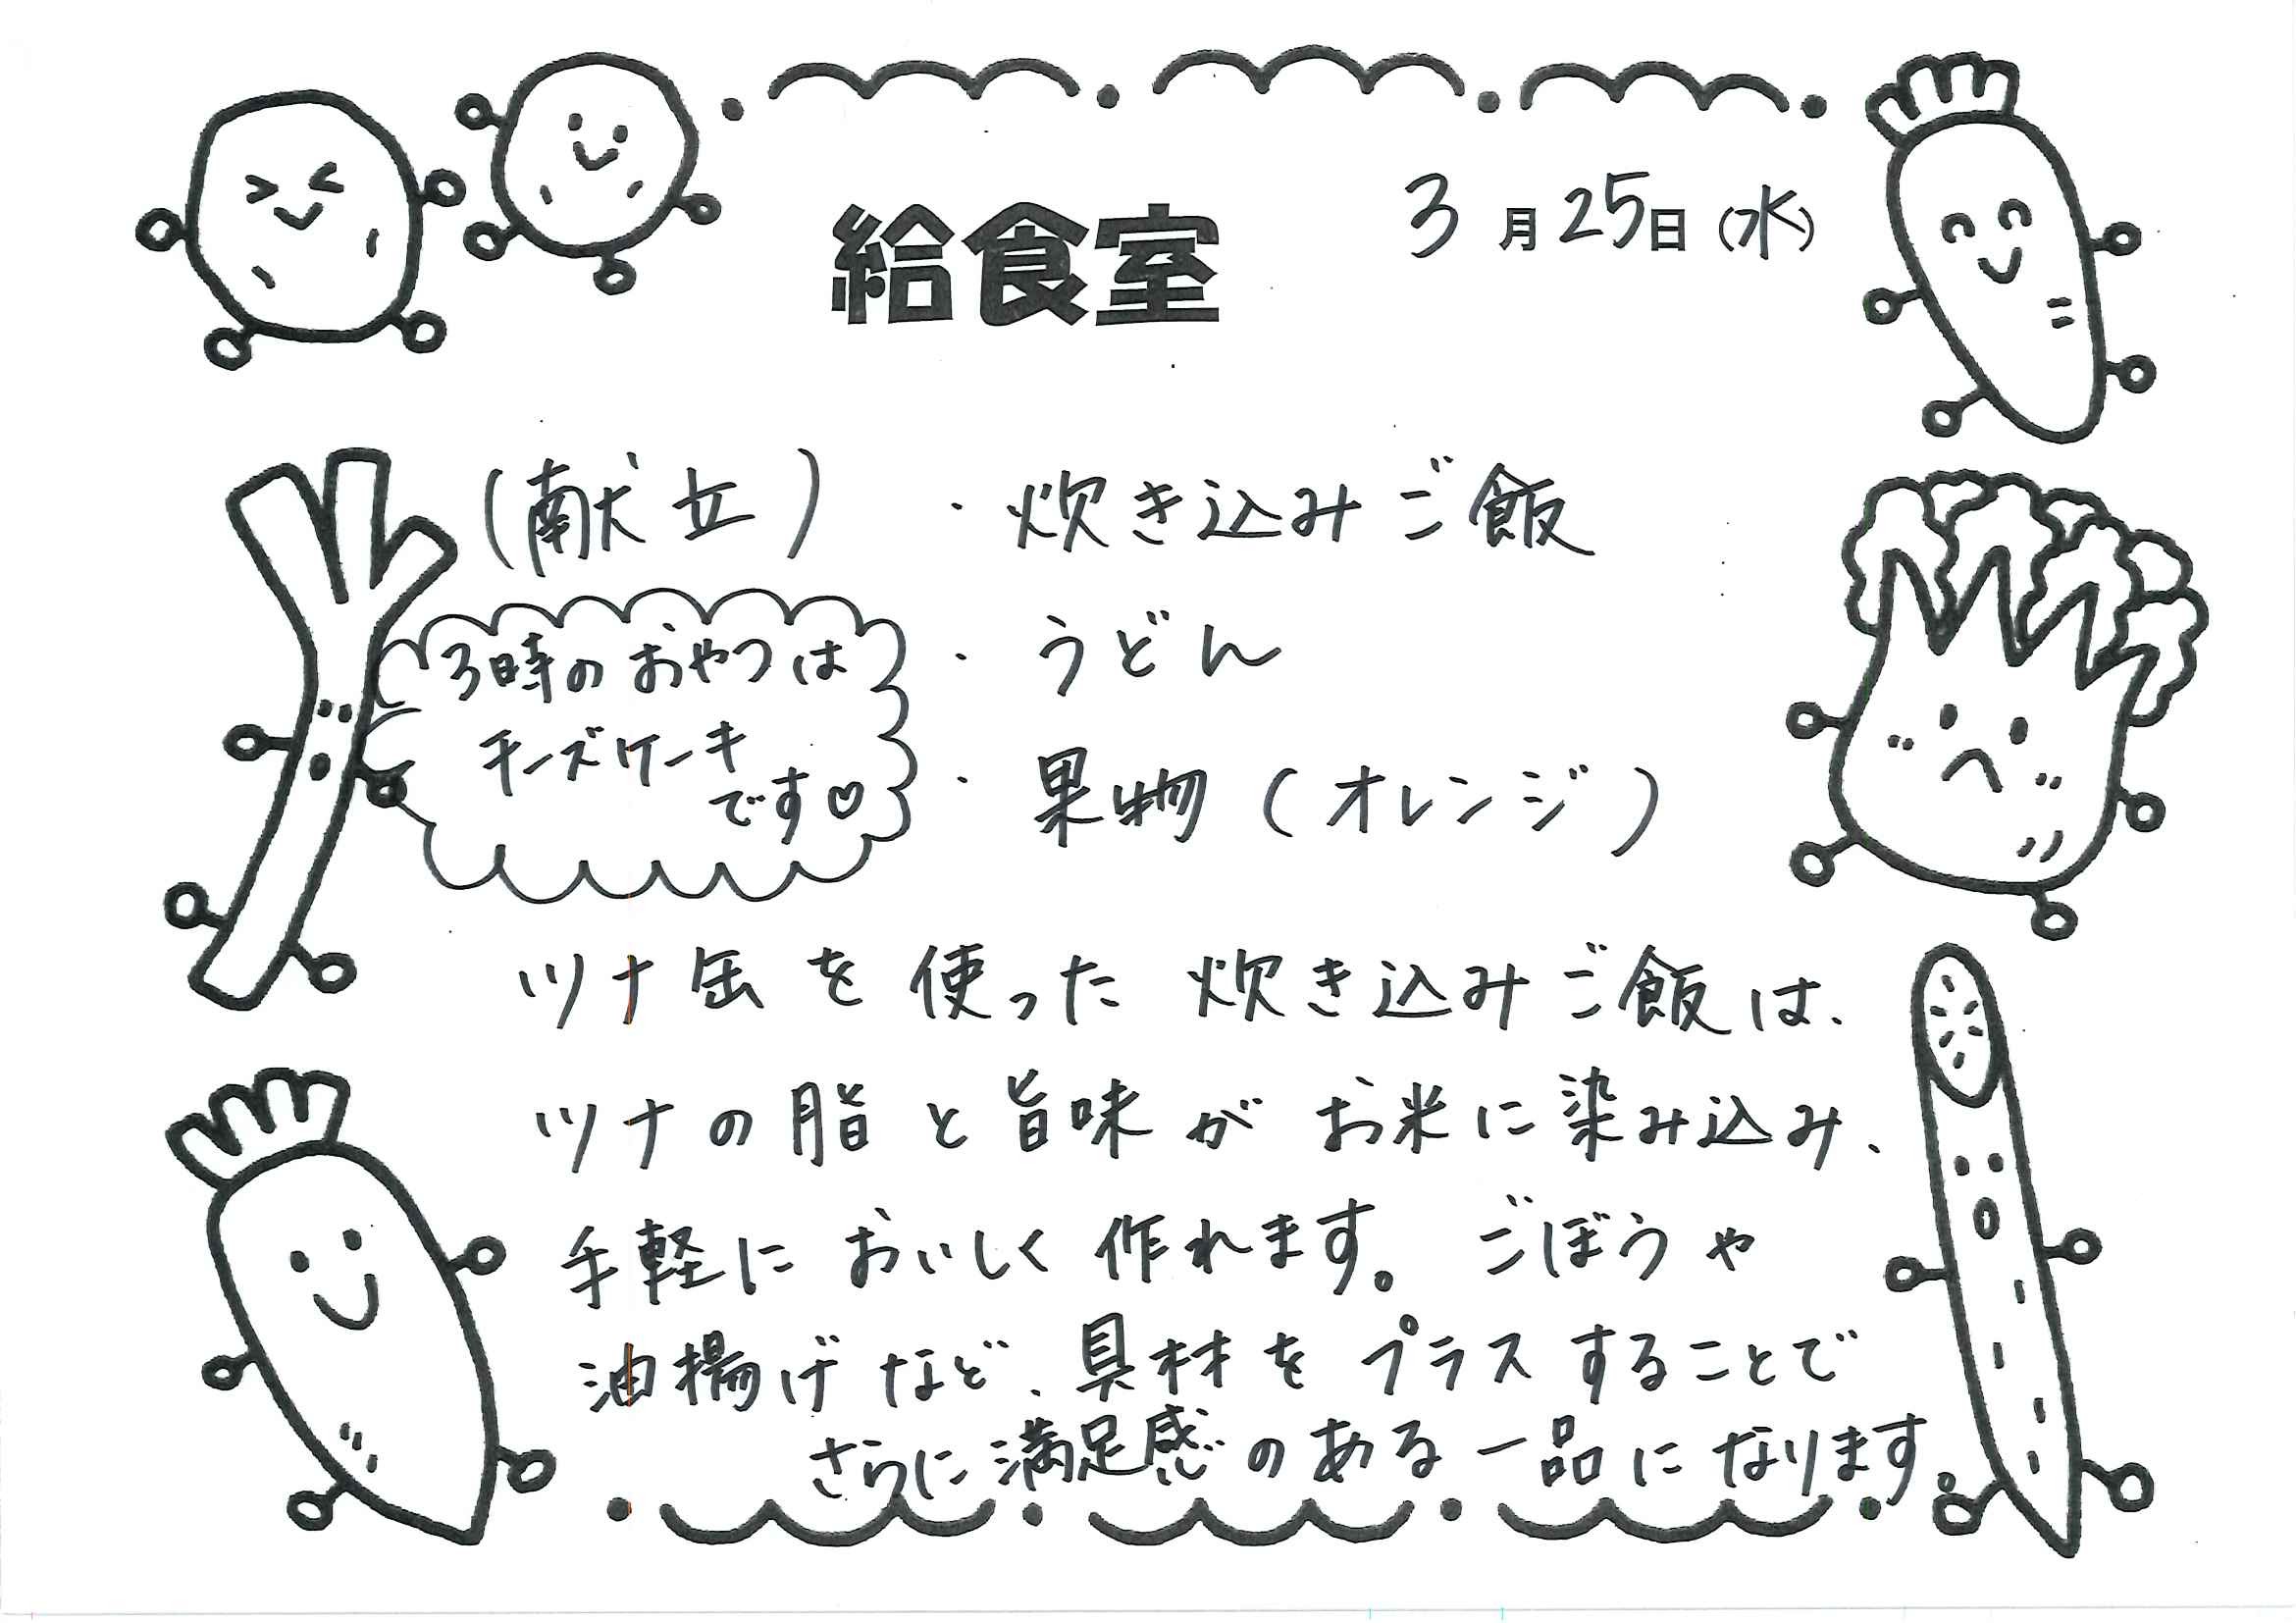 給食室
3月25日(水)
(献立)
・炊き込みご飯
・うどん
・果物(オレンジ)
3時のおやつは
チーズケーキ
です♡
ツナ缶を使った炊き込みご飯は、
ツナの脂と旨味がお米に染み込み、
手軽においしく作れます。ごぼうや
油揚げなど、具材をプラスすることで
さらに満足感のある一品になります。